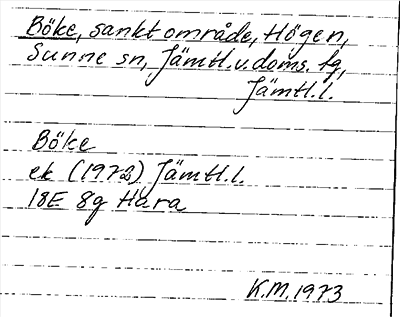 Böke, sankt område, Högen,
Sunne sn, Jämtl.v.doms. fg,
Jämtl.l.
Böke
ek (1973) Jämtl.l.
18E 8g Hara
K.M. 1973